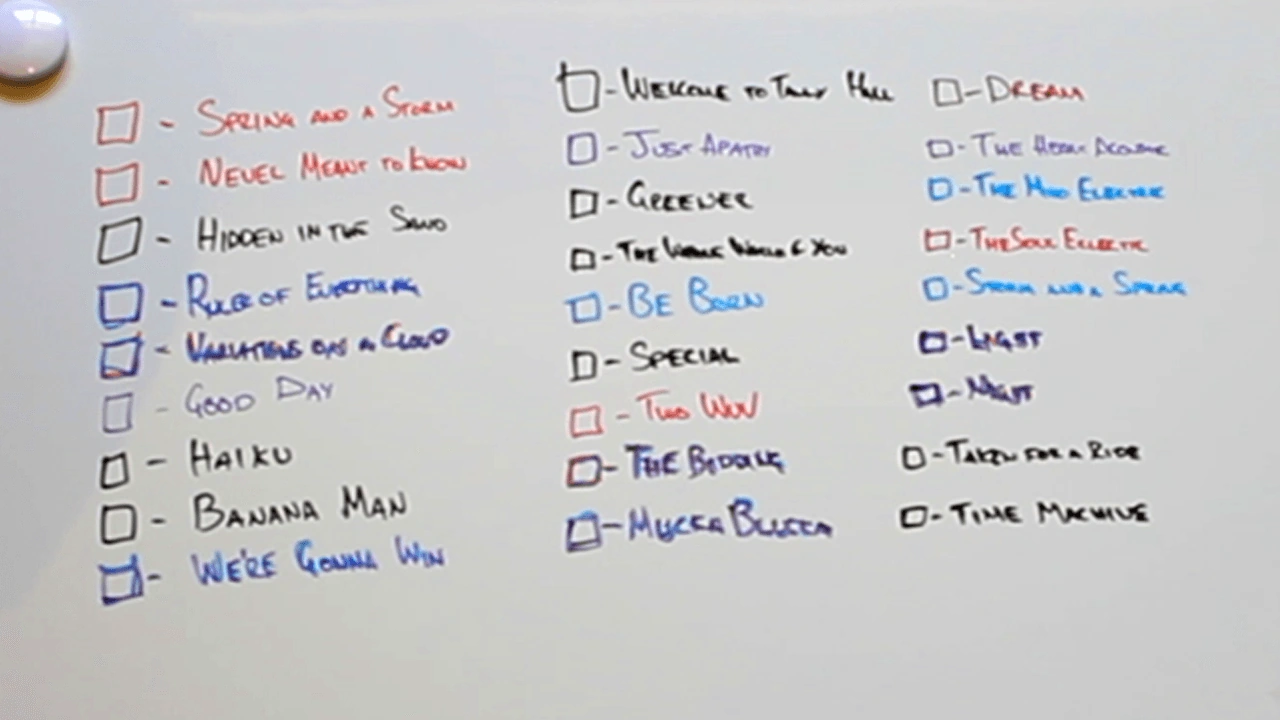 - Spring and a Storm
- Never Meant to Know
- Hidden in the Sand
- Ruler of Everything
- Variations on a Cloud
- Good Day
- Haiku
- Banana Man
- We're Gonna Win
- Welcome to Tally Hall
- Just Apathy
- Greener
- The Whole World & You
- Be Born
- Special
- Two Wuv
- The Bidding
- Mucka Blucka
- Dream
- The Hidden Acoustic
- The Mind Electric
- The Soul Eclectic
- Storm and a Spring
- Light
- Night
- Taken for a Ride
- Time Machine